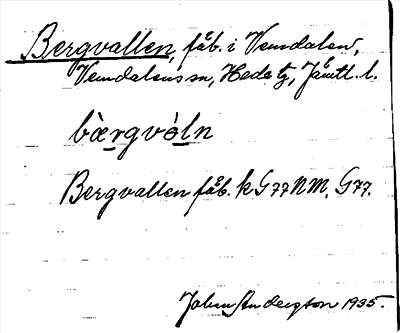 Bergvallen, fåb. i Vemdalen,
Vemdalens sn, Hede tg, Jämtl. l.
bàerġvòln
Bergvallen fåb. k G77NM, G77.
Johan Anderzson 1935.